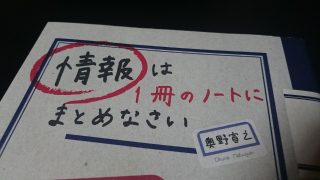 情報は
1冊のノートに
まとめなさい
奥野宣之
Okuno Nobuyuki